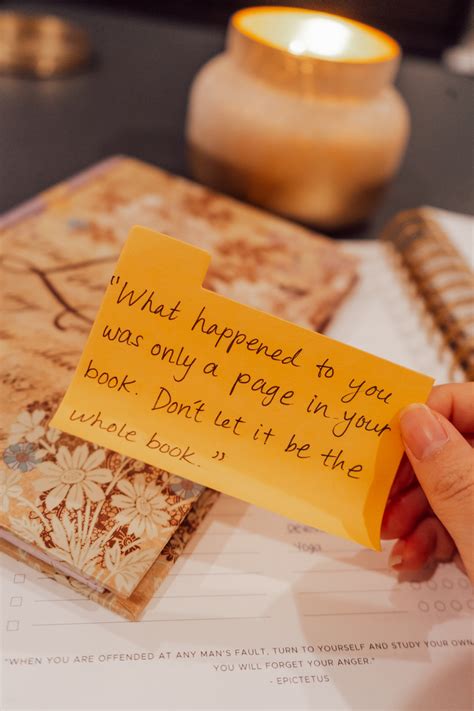 "What happened to you
was only a page in your
book. Don't let it be the
whole book."
Yoga
"WHEN YOU ARE OFFENDED AT ANY MAN'S FAULT, TURN TO YOURSELF AND STUDY YOUR OWN
YOU WILL FORGET YOUR ANGER."
- EPICTETUS